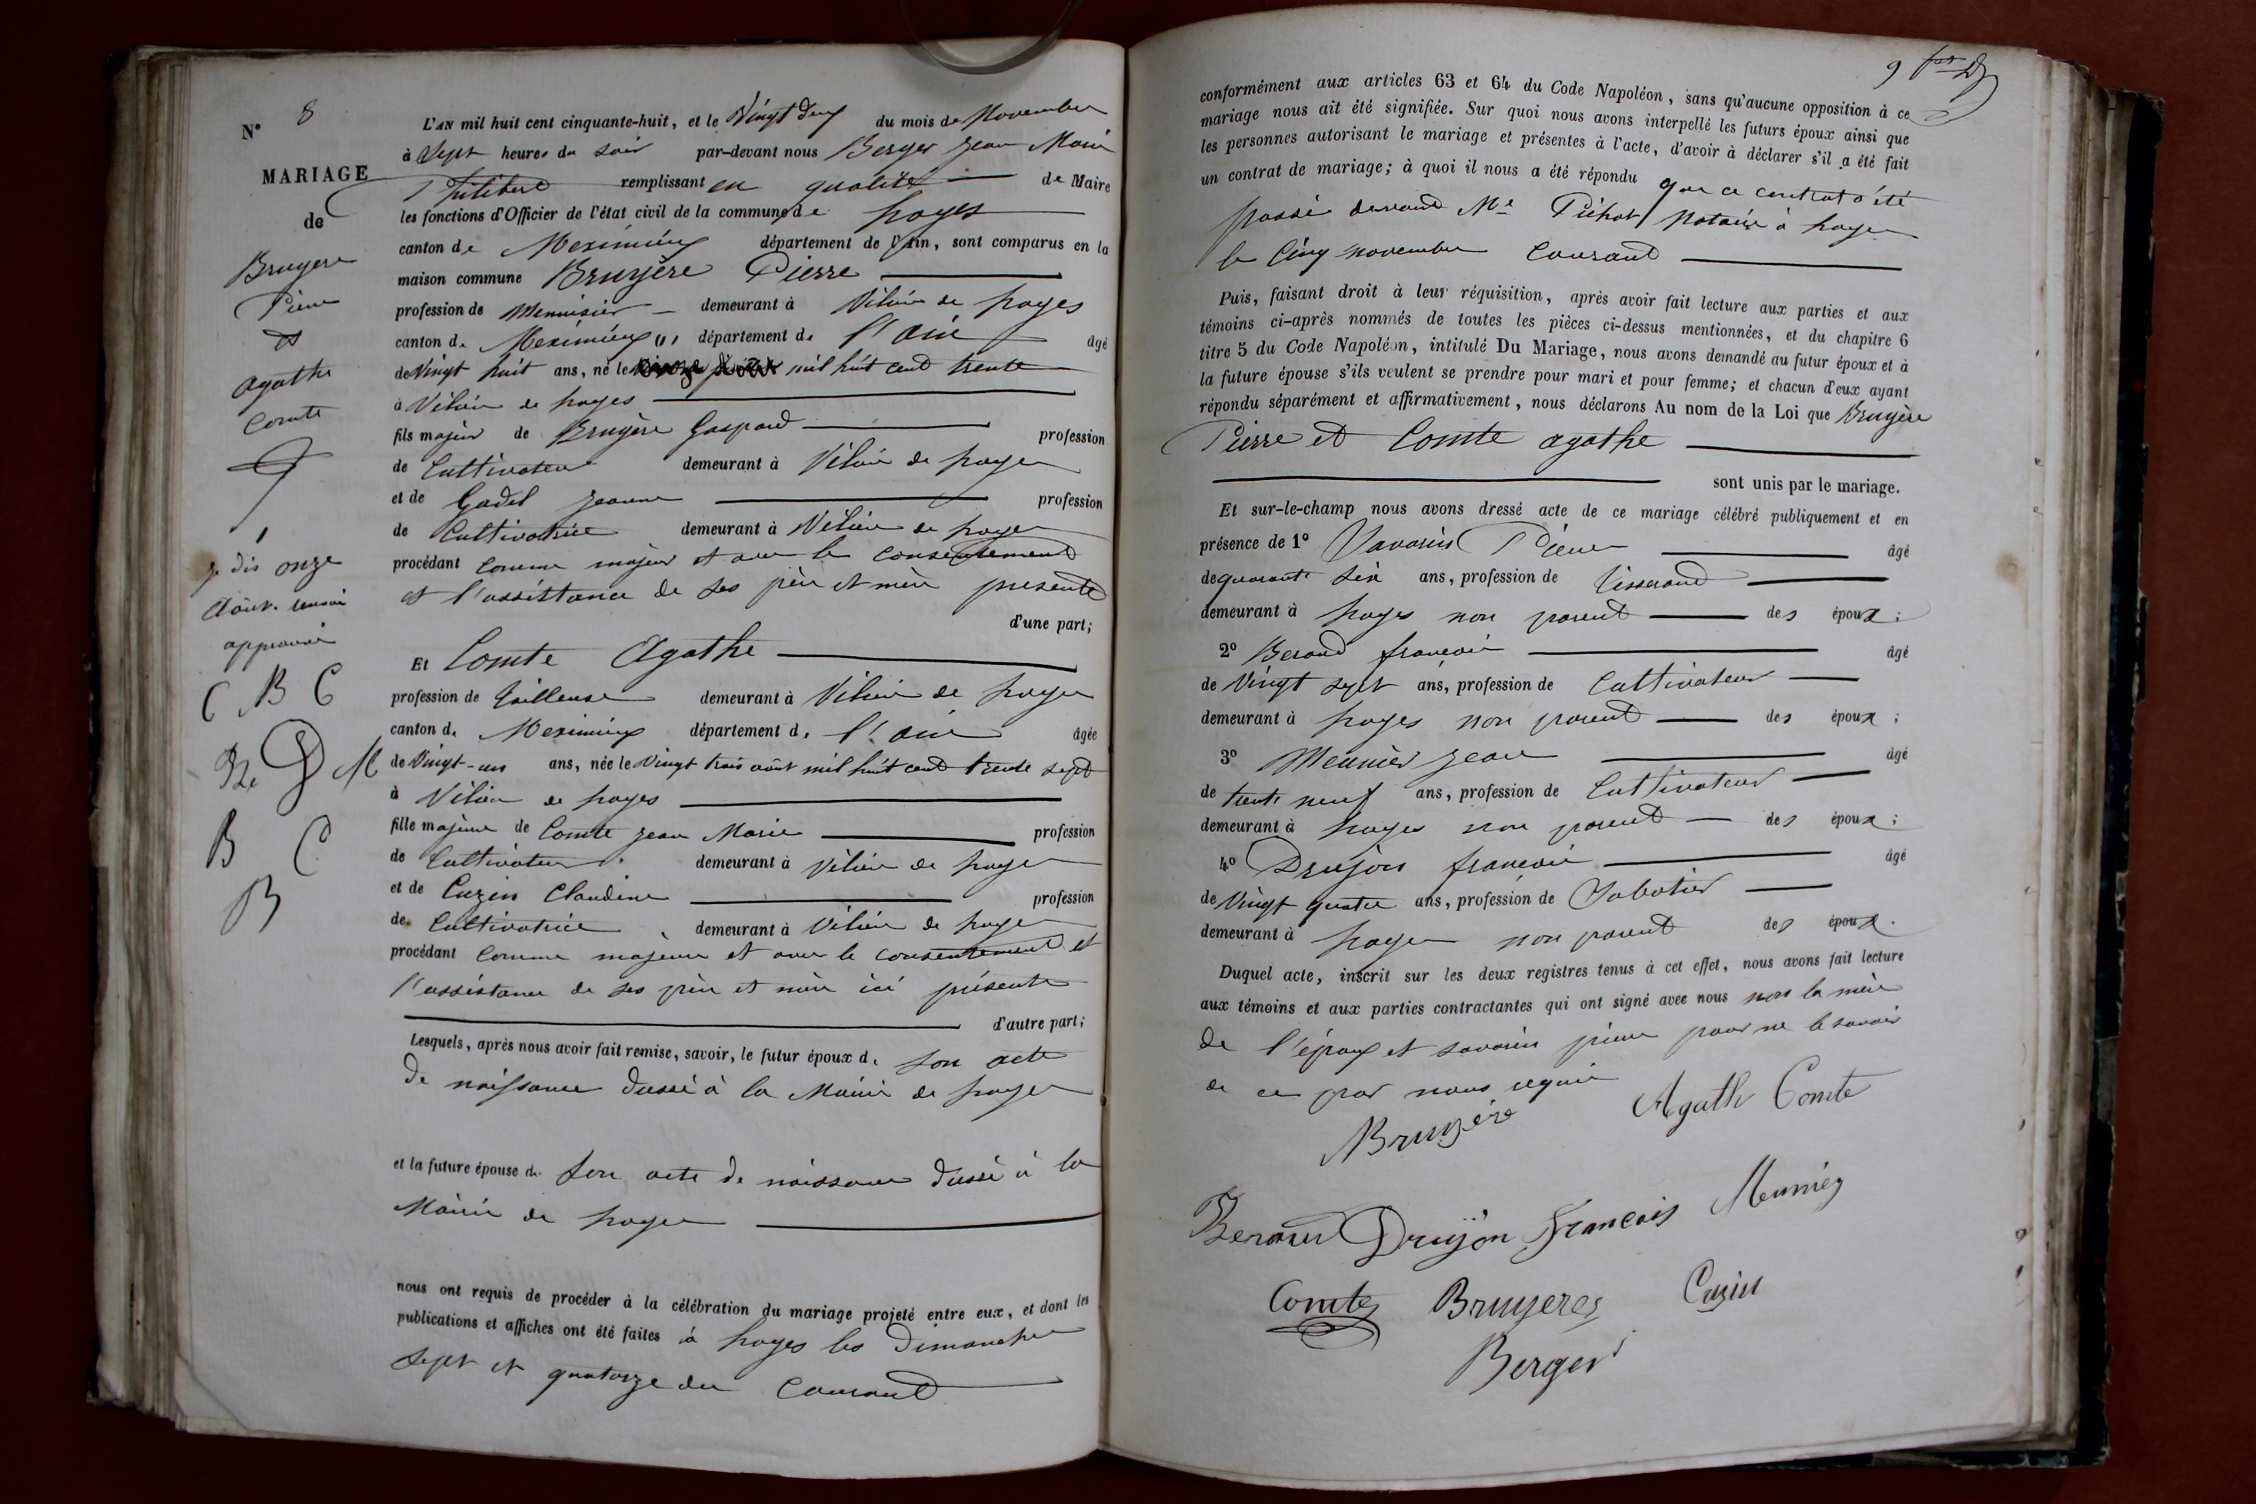 N° 8
MARIAGE
de
Bruyere
Pierre
et
Agathe
Comte
je dis onze
Août. renvoi
approuvé
C B C
Be D M
B C
B
L'AN mil huit cent cinquante-huit, et le Vingt deux du mois de Novembre
à Sept heures du soir par-devant nous Berger Jean Marie
Philibert remplissant en qualité de Maire
les fonctions d'Officier de l'état civil de la commune de Loyes
canton de Meximieux département de l'Ain, sont comparus en la
maison commune Bruyère Pierre
profession de Menuisier demeurant à Vilieu de Loyes
canton de Meximieux département de l'Ain âgé
de Vingt huit ans, né le mil huit cent trente
à Vilieu de Loyes
fils majeur de Bruyère Gaspard profession
de Cultivateur demeurant à Vilieu de Loyes
et de Gadel Jeanne profession
de Cultivatrice demeurant à Vilieu de Loyes
procédant comme majeur et avec le consentement
et l'assistance de ses père et mère presents
d'une part;
Et Comte Agathe
profession de tailleuse demeurant à Vilieu de Loyes
canton de Meximieux département de l'Ain âgée
de Vingt-un ans, née le Vingt trois août mil huit cent trente sept
à Vilieu de Loyes
fille majeure de Comte Jean Marie profession
de Cultivateur demeurant à Vilieu de Loyes
et de Cuzin Claudine profession
de Cultivatrice demeurant à Vilieu de Loyes
procédant comme majeure et avec le consentement et
l'assistance de ses père et mère ici présents
d'autre part;
Lesquels, après nous avoir fait remise, savoir, le futur époux de son acte
de naissance dressé à la Mairie de Loyes
et la future épouse de son acte de naissance dressé à la
Mairie de Loyes
nous ont requis de procéder à la célébration du mariage projeté entre eux, et dont les
publications et affiches ont été faites à Loyes les Dimanches
sept et quatorze du courant
9
conformément aux articles 63 et 64 du Code Napoléon, sans qu'aucune opposition à ce
mariage nous ait été signifiée. Sur quoi nous avons interpellé les futurs époux ainsi que
les personnes autorisant le mariage et présentes à l'acte, d'avoir à déclarer s'il a été fait
un contrat de mariage; à quoi il nous a été répondu que ce contrat a été
passé devant Me Pichat Notaire à Loyes
le Cinq novembre Courant
Puis, faisant droit à leur réquisition, après avoir fait lecture aux parties et aux
témoins ci-après nommés de toutes les pièces ci-dessus mentionnées, et du chapitre 6
titre 5 du Code Napoléon, intitulé Du Mariage, nous avons demandé au futur époux et à
la future épouse s'ils veulent se prendre pour mari et pour femme; et chacun d'eux ayant
répondu séparément et affirmativement, nous déclarons Au nom de la Loi que Bruyère
Pierre et Comte Agathe
sont unis par le mariage.
Et sur-le-champ nous avons dressé acte de ce mariage célébré publiquement et en
présence de 1° Savarin Pierre âgé
de quarante six ans, profession de Tisserand
demeurant à Loyes non parent des époux;
2° Beraud françois âgé
de Vingt sept ans, profession de Cultivateur
demeurant à Loyes non parent des époux;
3° Meunier Jean âgé
de trente neuf ans, profession de Cultivateur
demeurant à Loyes non parent des époux;
4° Drujon françois âgé
de Vingt quatre ans, profession de Sabotier
demeurant à Loyes non parent des époux.
Duquel acte, inscrit sur les deux registres tenus à cet effet, nous avons fait lecture
aux témoins et aux parties contractantes qui ont signé avec nous non la mère
de l'époux et savarin pierre pour ne le savoir
de ce par nous requis
Bruyère Agath Comte
Beraud Drujon François Meuniez
Comte Bruyeres Cuzin
Berger